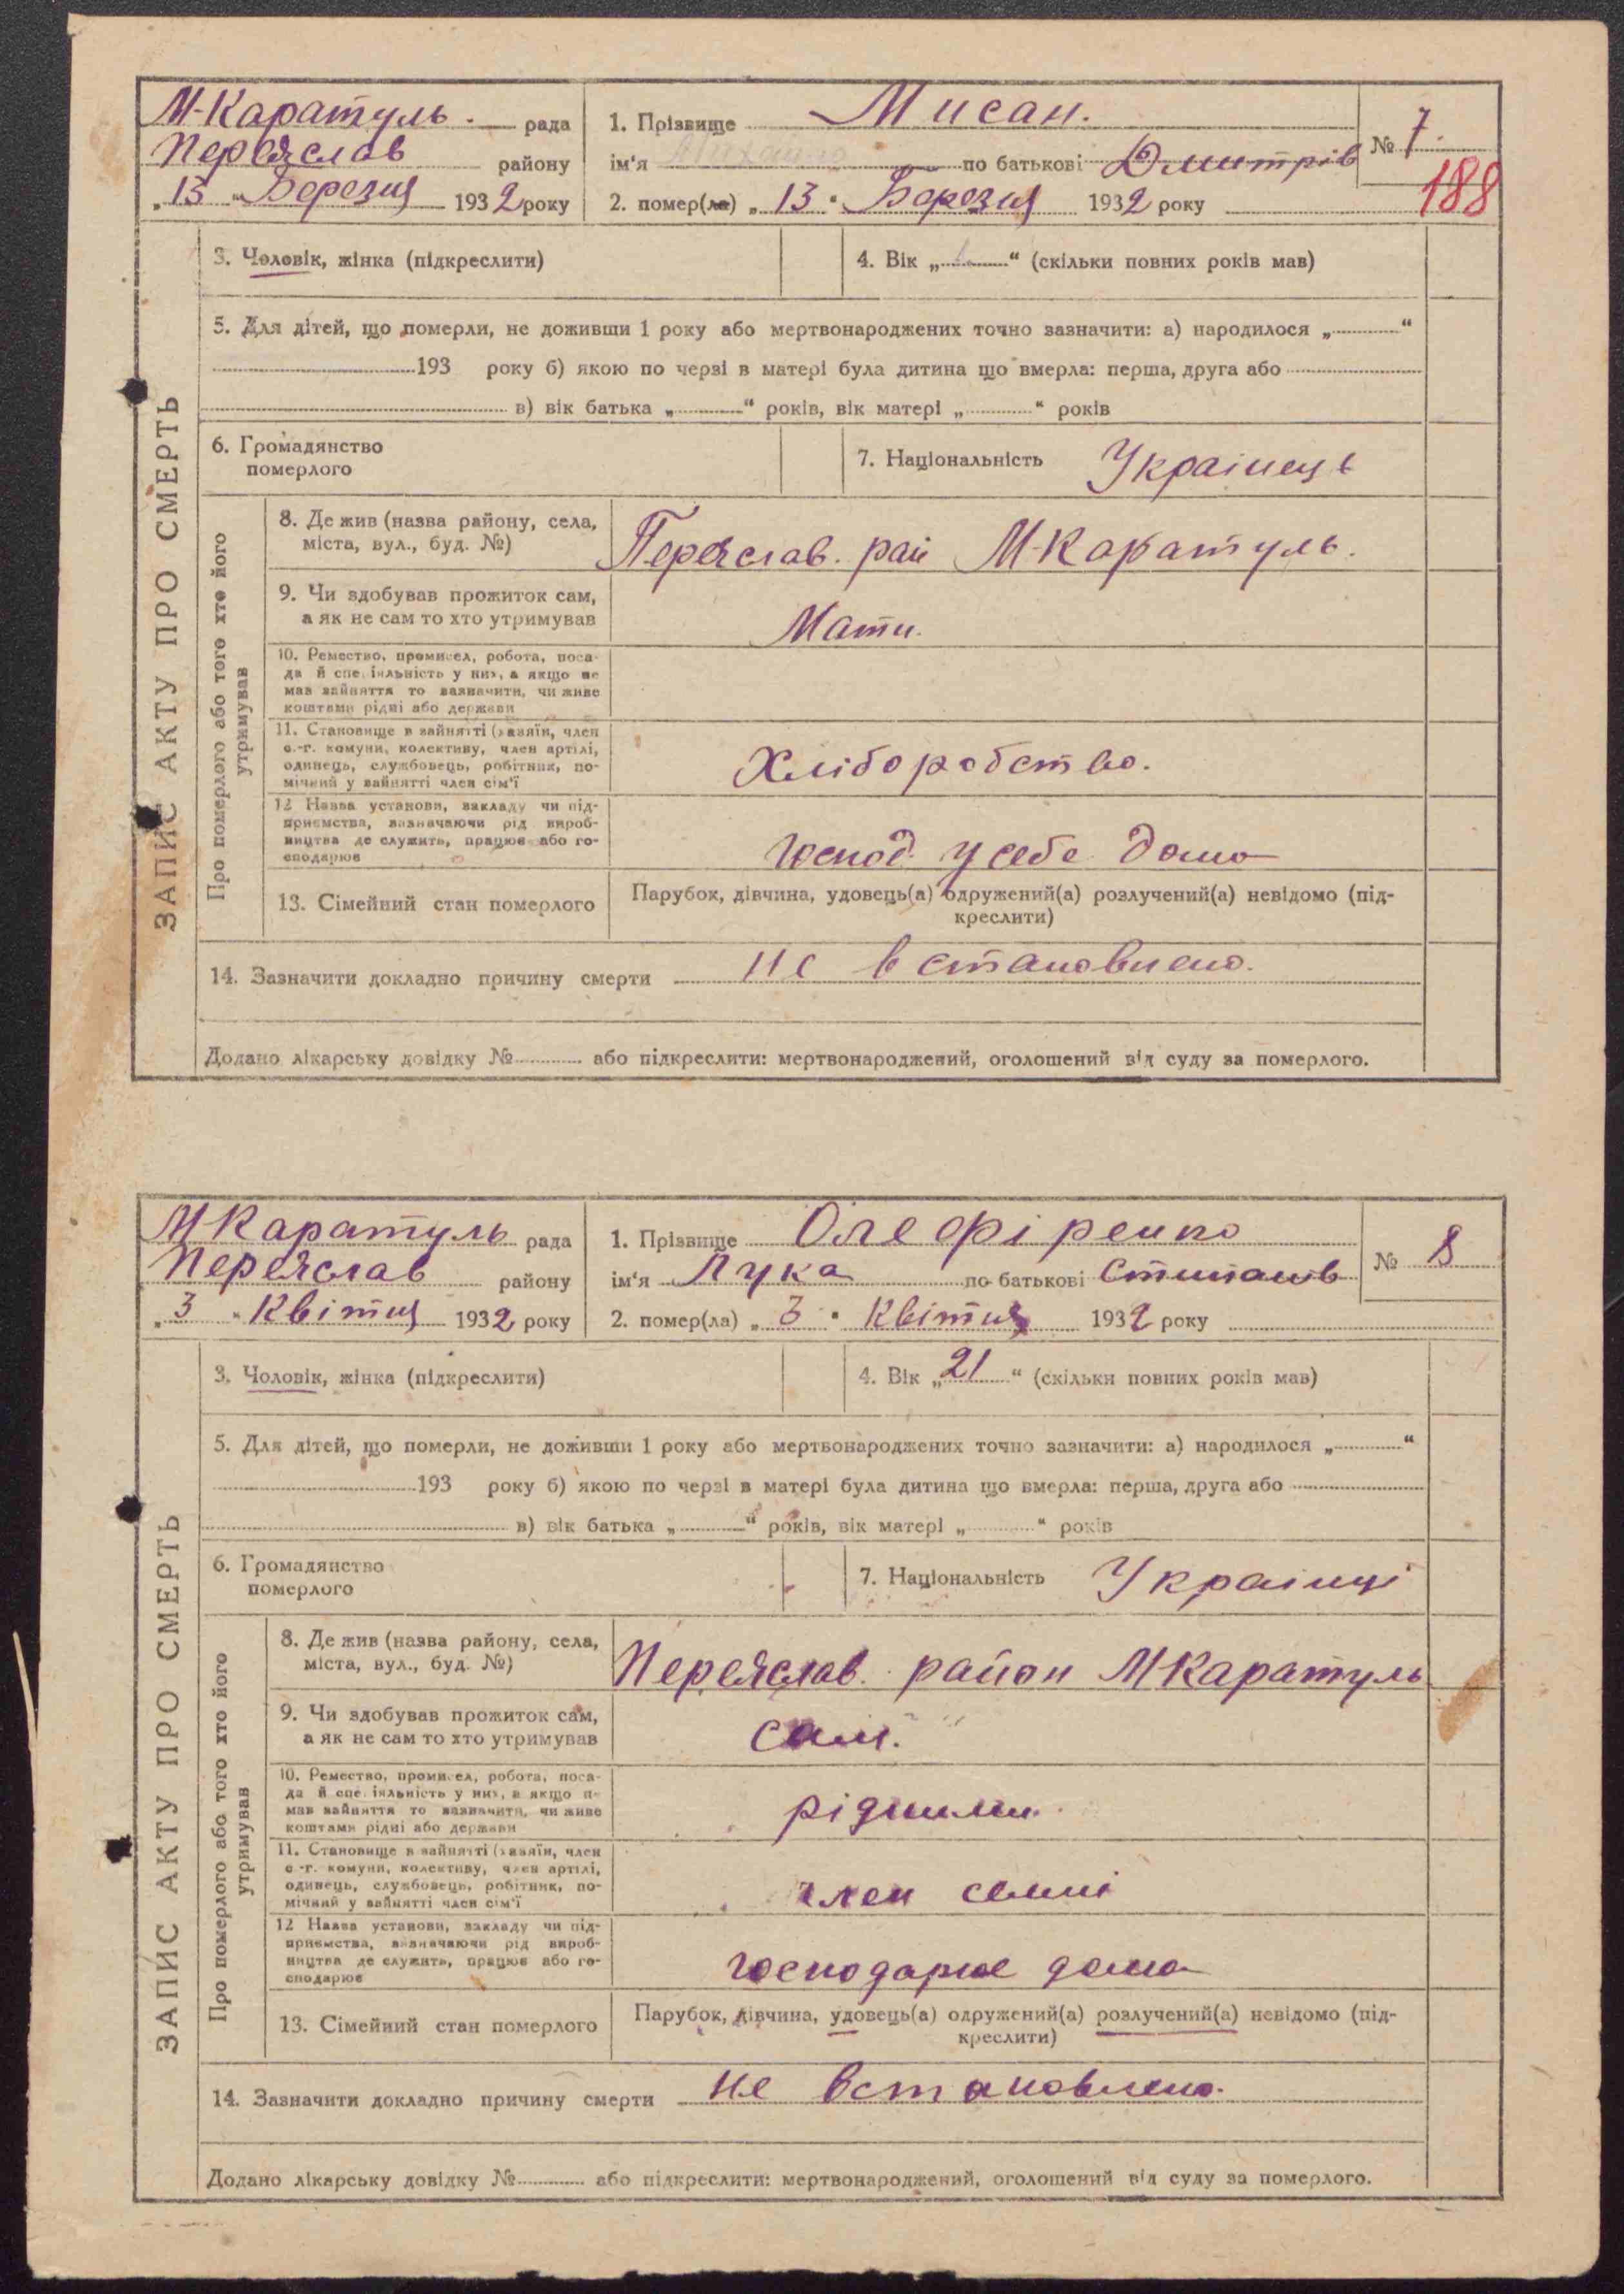 ЗАПИС АКТУ ПРО СМЕРТЬ
М-Каратуль. рада
Переяслав району
„13“ Березня 1932 року
1. Прізвище Мисан.
ім'я Михайло по батькові Дмитрів
2. помер(ла) „13“ Березня 1932 року
№ 7.
188
3. Чоловік, жінка (підкреслити)
4. Вік „“ (скільки повних років мав)
5. Для дітей, що померли, не доживши 1 року або мертвонароджених точно зазначити: а) народилося „“
193 року б) якою по черзі в матері була дитина що вмерла: перша, друга або
в) вік батька „“ років, вік матері „“ років
6. Громадянство
померлого
7. Національність Украінець
Про померлого або того хто його
утримував
8. Де жив (назва району, села,
міста, вул., буд. №)
Переяслав. рай М-Каратуль.
9. Чи здобував прожиток сам,
а як не сам то хто утримував
Мати.
10. Ремество, промисел, робота, поса-
да й спеціяльність у них, а якщо не
мав зайняття то зазначити, чи живе
коштами рідні або держави
11. Становище в зайнятті (хазяїн, член
с.-г. комуни, колективу, член артілі,
одинець, службовець, робітник, по-
мічний у зайнятті член сім'ї
Хліборобство.
12 Назва установи, закладу чи під-
приємства, зазначаючи рід вироб-
ництва де служить, працює або го-
сподарює
Господ. у себе дома
13. Сімейний стан померлого
Парубок, дівчина, удовець(а) одружений(а) розлучений(а) невідомо (під-
креслити)
14. Зазначити докладно причину смерти не встановлено.
Додано лікарську довідку № або підкреслити: мертвонароджений, оголошений від суду за померлого.
ЗАПИС АКТУ ПРО СМЕРТЬ
М Каратуль рада
Переяслав району
„3“ Квітня 1932 року
1. Прізвище Олефіренко
ім'я Лука по батькові Степанів
2. помер(ла) „3“ Квітня 1932 року
№ 8
3. Чоловік, жінка (підкреслити)
4. Вік „21“ (скільки повних років мав)
5. Для дітей, що померли, не доживши 1 року або мертвонароджених точно зазначити: а) народилося „“
193 року б) якою по черзі в матері була дитина що вмерла: перша, друга або
в) вік батька „“ років, вік матері „“ років
6. Громадянство
померлого
7. Національність Украінці
Про померлого або того хто його
утримував
8. Де жив (назва району, села,
міста, вул., буд. №)
Переяслав. район М Каратуль
9. Чи здобував прожиток сам,
а як не сам то хто утримував
сам.
10. Ремество, промисел, робота, поса-
да й спеціяльність у них, а якщо не
мав зайняття то зазначити, чи живе
коштами рідні або держави
рідними.
11. Становище в зайнятті (хазяїн, член
с.-г. комуни, колективу, член артілі,
одинець, службовець, робітник, по-
мічний у зайнятті член сім'ї
член семні
12 Назва установи, закладу чи під-
приємства, зазначаючи рід вироб-
ництва де служить, працює або го-
сподарює
господарює дома
13. Сімейний стан померлого
Парубок, дівчина, удовець(а) одружений(а) розлучений(а) невідомо (під-
креслити)
14. Зазначити докладно причину смерти не встановлено.
Додано лікарську довідку № або підкреслити: мертвонароджений, оголошений від суду за померлого.